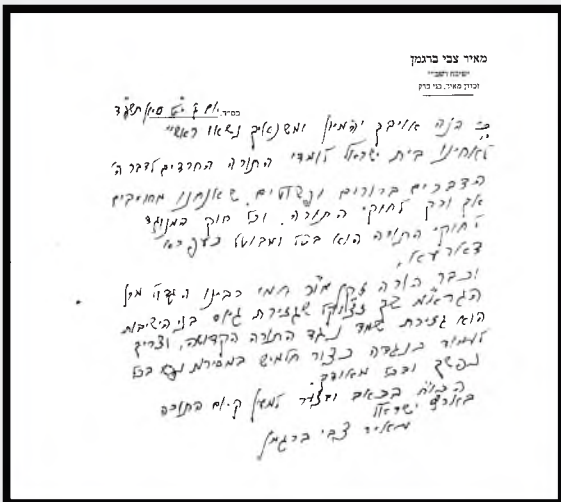 מאיר צבי ברגמן
ישיבת רשב"י
זכרון מאיר, בני ברק
בס"ד, יום ג' י"ט סיון תשע"ד
כי הנה אויביך יהמיון ומשנאיך נשאו ראש
לאחינו בית ישראל לומדי התורה החרדים לדבר ה'
הדברים ברורים ופשוטים, שאנחנו מחויבים
אך ורק לחוקי התורה, וכל חוק במנוגד
לחוקי התורה הוא בטל ומבוטל כעפרא
דארעא,
וכבר הורה זקן מו"ר חמי רבינו הגדול מרן
הגרא"מ שך זצוק"ל שגזירת גיוס בני הישיבות
הוא גזירת שמד נגד התורה הקדושה, וצריך
לעמוד כנגדה כצור חלמיש במסירות נפש בכל
נפשך ובכל מאודך
הכו"ח בכאב ובצער למען קיום התורה
בארץ ישראל
מאיר צבי ברגמן